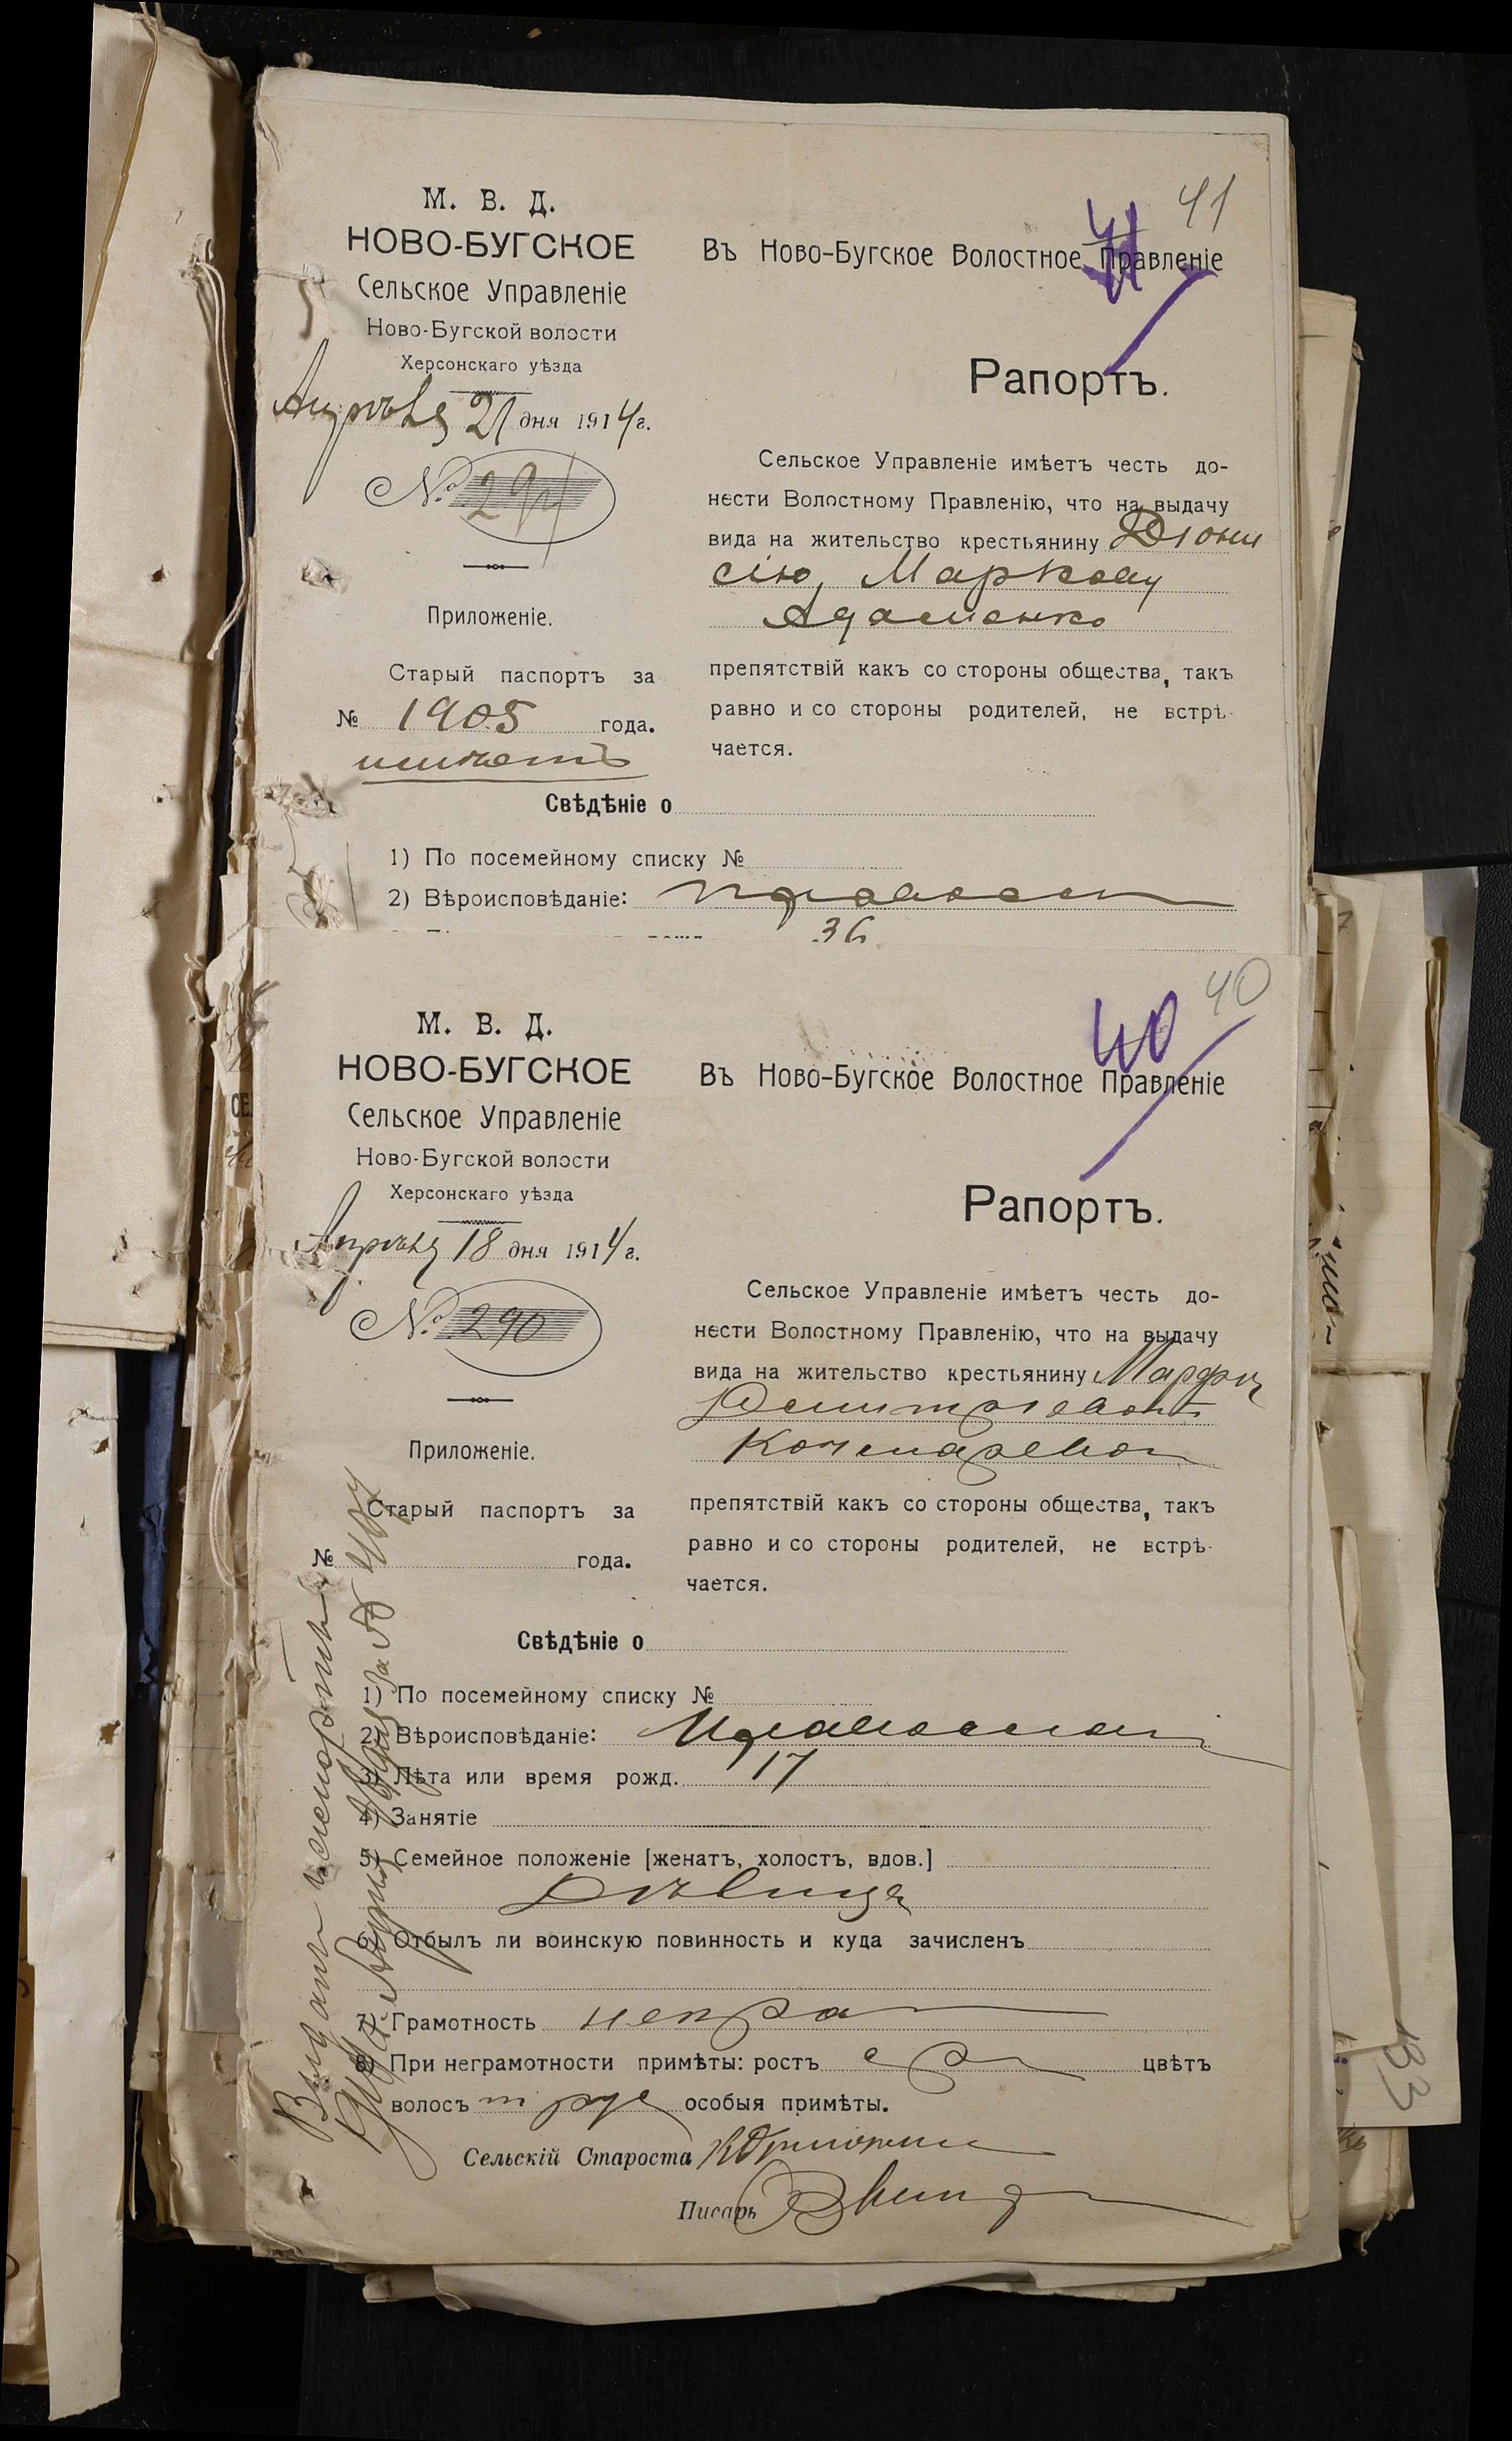 41
41
М. В. Д.
НОВО-БУГСКОЕ
Сельское Управленіе
Ново-Бугской волости
Херсонскаго уѣзда
Апрѣля 21 дня 1914 г.
№ 294
Приложеніе.
Старый паспортъ за
№ 1905 года.
Въ Ново-Бугское Волостное Правленіе
Рапортъ.
Сельское Управленіе имѣетъ честь до-
нести Волостному Правленію, что на выдачу
вида на жительство крестьянину Діони
сію, Маркову
Адаменко
препятствій какъ со стороны общества, такъ
равно и со стороны родителей, не встрѣ-
чается.
Свѣдѣніе о
1) По посемейному списку №
2) Вѣроисповѣданіе: православн
36
40
40
М. В. Д.
НОВО-БУГСКОЕ
Сельское Управленіе
Ново-Бугской волости
Херсонскаго уѣзда
Апрѣля 18 дня 1914 г.
№ 290
Приложеніе.
Старый паспортъ за
№ года.
Въ Ново-Бугское Волостное Правленіе
Рапортъ.
Сельское Управленіе имѣетъ честь до-
нести Волостному Правленію, что на выдачу
вида на жительство крестьянину Марфѣ
Демитріевой
препятствій какъ со стороны общества, такъ
равно и со стороны родителей, не встрѣ-
чается.
Свѣдѣніе о
1) По посемейному списку №
2) Вѣроисповѣданіе: Православной
3) Лѣта или время рожд. 17
4) Занятіе
5) Семейное положеніе [женатъ, холостъ, вдов.]
Дѣвица
6) Отбылъ ли воинскую повинность и куда зачисленъ
7) Грамотность негра
8) При неграмотности примѣты: ростъ ср цвѣтъ
волосъ т рус особыя примѣты.
Сельскій Староста
Писарь
133